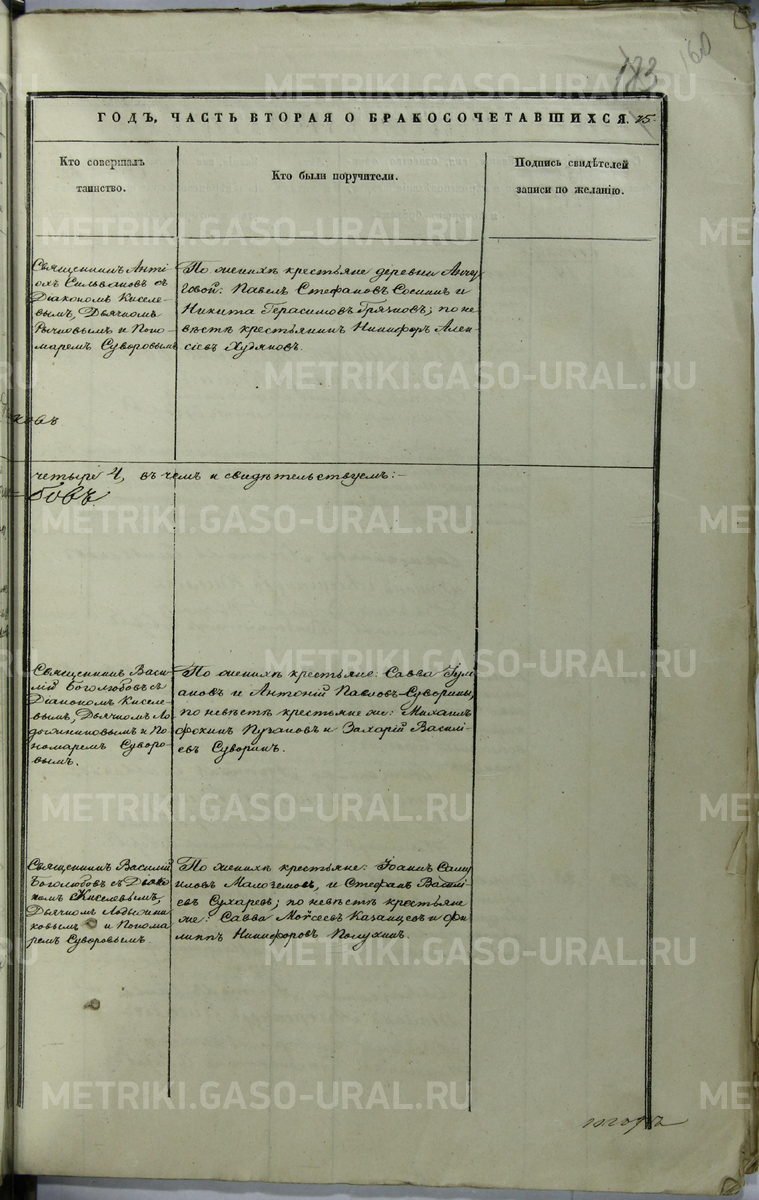 183
160
ГОДЪ, ЧАСТЬ ВТОРАЯ О БРАКОСОЧЕТАВШИХСЯ. 25.
Кто совершалъ
таинство.
Кто были поручители.
Подпись свидѣтелей
записи по желанію.
Священникъ Анті-
охъ Сильвановъ съ
Діакономъ Киселе-
вымъ, Дьячкомъ
Рычковымъ и Поно-
маремъ Суворовымъ
По женихѣ крестьяне деревни
говой: Павелъ Стефановъ Сосинъ и
Никита Герасимовъ Грязновъ; по не-
вѣстѣ крестьянинъ Никифоръ Алек-
сіевъ Худяковъ.
ковъ
четыре 4, въ чемъ и свидѣтельствуемъ:-
бовъ
Священникъ Васи-
лій Боголюбовъ съ
Діакономъ Кисе-
вымъ, Дьячкомъ Ло-
дыжниковымъ и По-
номаремъ Суворо-
вымъ.
По женихѣ крестьяне: Савва
ановъ и Антоній Павловъ Суворины,
по невѣстѣ крестьяне же: Михаилъ
Фокинъ Пузановъ и Захарій Василі-
евъ Суворинъ.
Священникъ Василій
Боголюбовъ съ Діако-
номъ Киселевымъ,
Дьячкомъ Лодыжни-
ковымъ и Понома-
ремъ Суворовымъ.
По женихѣ крестьяне: Іоаннъ Саму-
иловъ Малоземовъ, и Стефанъ Василі-
евъ Сухаревъ; по невѣстѣ крестьяне
же: Савва Мойсеевъ Казанцевъ и Фи-
липпъ Никифоровъ Полухинъ.
METRIKI.GASO-URAL.RU